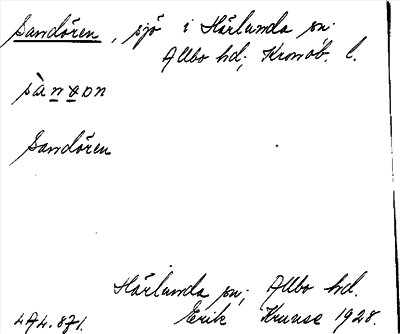 Sandören, sjö i Härlunda sn;
Allbo hd; Kronob. l.
sàn ø o n
Sandören
Härlunda sn; Allbo hd.
474.871. Erik Kruuse 1928.